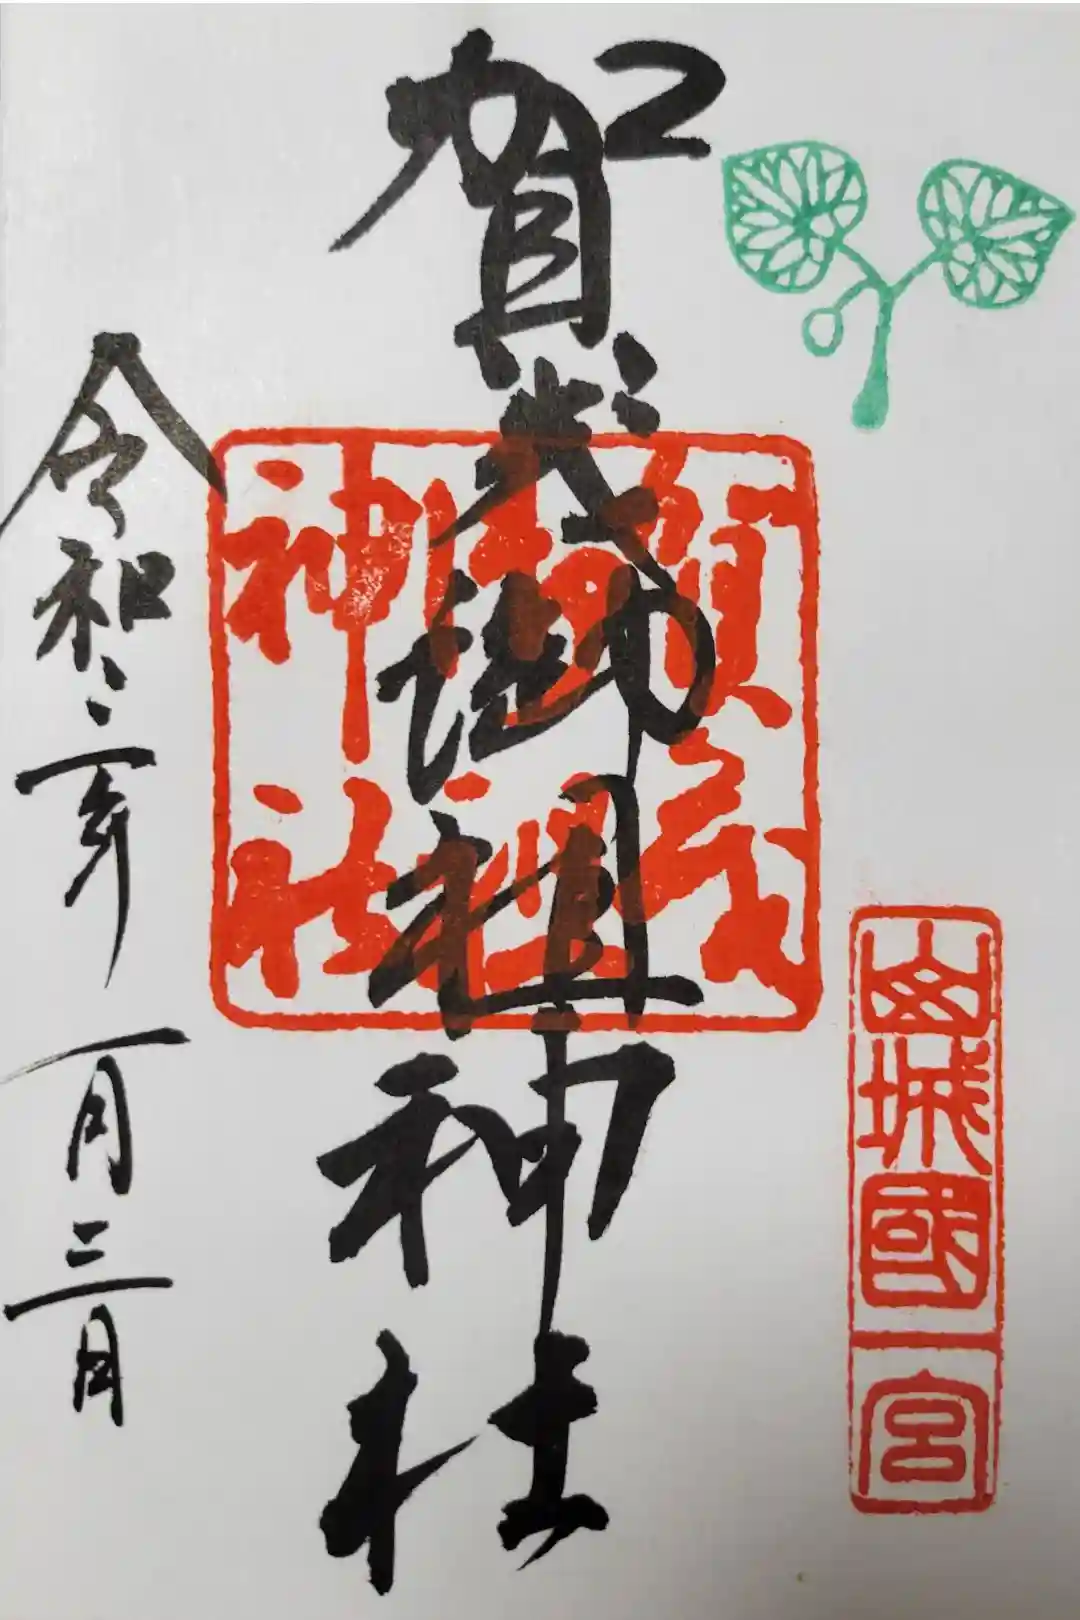 山城國一宮
賀茂御祖神社
賀茂
御祖
神社
令和二年一月三日